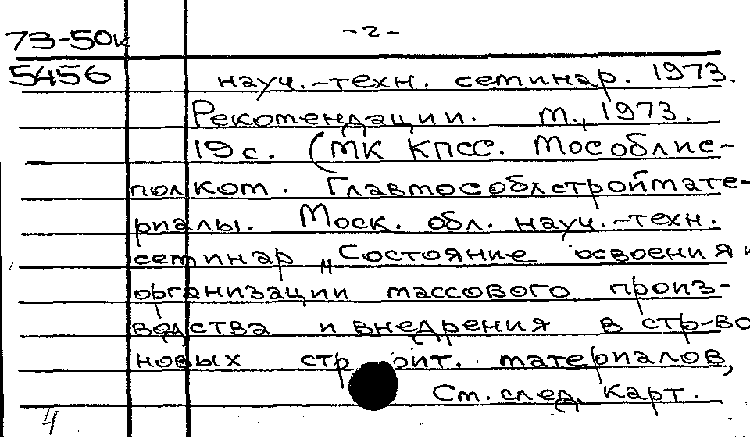 73-50к -2-
5456 науч.-техн. семинар. 1973.
Рекомендации. М., 1973.
19 с. (МК КПСС. Мособлис-
полком. Главмособлстроймате-
риалы. Моск. обл. науч.-техн.
семинар „Состояние освоения и
организации массового произ-
водства и внедрения в стр-во
новых строит. материалов,
См. след. карт.
4